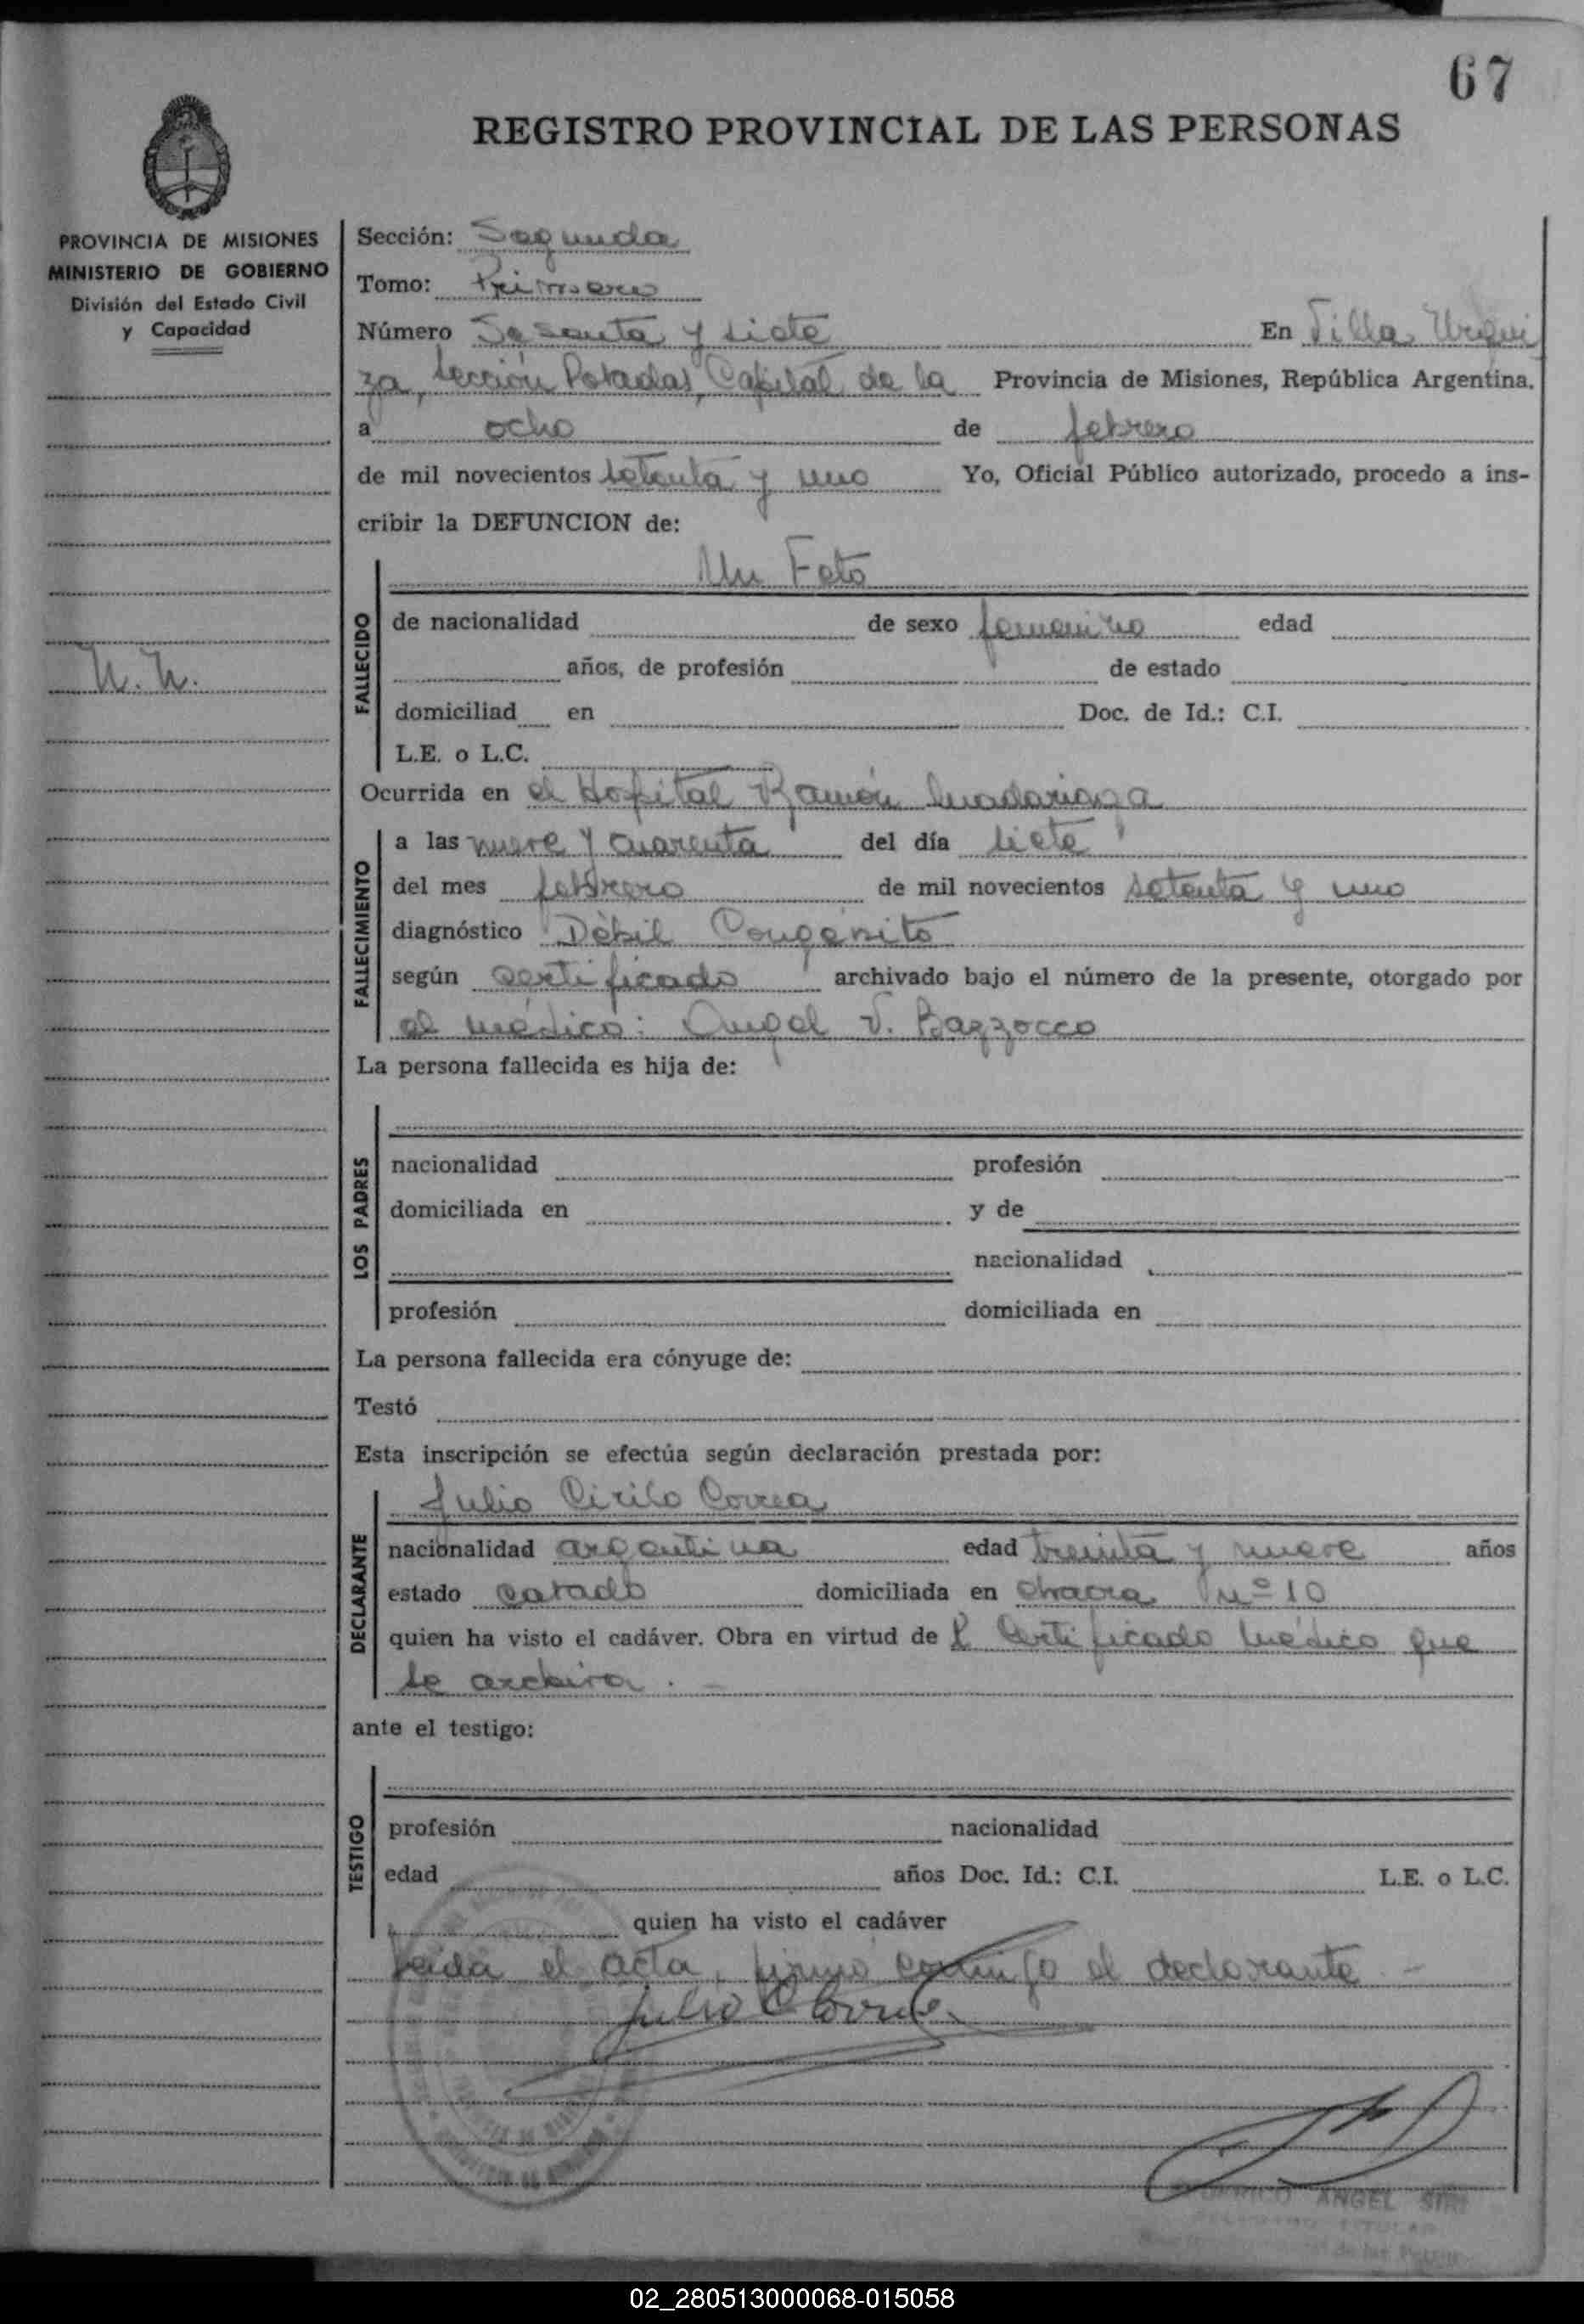 67
REGISTRO PROVINCIAL DE LAS PERSONAS
PROVINCIA DE MISIONES
MINISTERIO DE GOBIERNO
División del Estado Civil
y Capacidad
N. N.
Sección: Segunda
Tomo: Primero
Número Sesenta y siete En Villa Urqui
za, Sección Posadas, Capital de la Provincia de Misiones, República Argentina.
a ocho de febrero
de mil novecientos setenta y uno Yo, Oficial Público autorizado, procedo a ins-
cribir la DEFUNCION de:
Un Feto
FALLECIDO
de nacionalidad de sexo femenino edad
años, de profesión de estado
domiciliad en Doc. de Id.: C.I.
L.E. o L.C.
Ocurrida en el Hospital Ramón Madariaga
FALLECIMIENTO
a las nueve y cuarenta del día siete
del mes febrero de mil novecientos setenta y uno
diagnóstico Débil Congénito
según certificado archivado bajo el número de la presente, otorgado por
el médico: Angel V. Bazzocco
La persona fallecida es hija de:
LOS PADRES
nacionalidad profesión
domiciliada en y de
nacionalidad
profesión domiciliada en
La persona fallecida era cónyuge de:
Testó
Esta inscripción se efectúa según declaración prestada por:
DECLARANTE
Julio Cirilo Correa
nacionalidad argentina edad treinta y nueve años
estado casado domiciliada en chacra Nº 10
quien ha visto el cadáver. Obra en virtud de l certificado médico que
se archiva. -
ante el testigo:
TESTIGO
profesión nacionalidad
edad años Doc. Id.: C.I. L.E. o L.C.
quien ha visto el cadáver
Leida el acta, firmó conmigo el declarante -
Julio C Correa
ANGEL
02_280513000068-015058